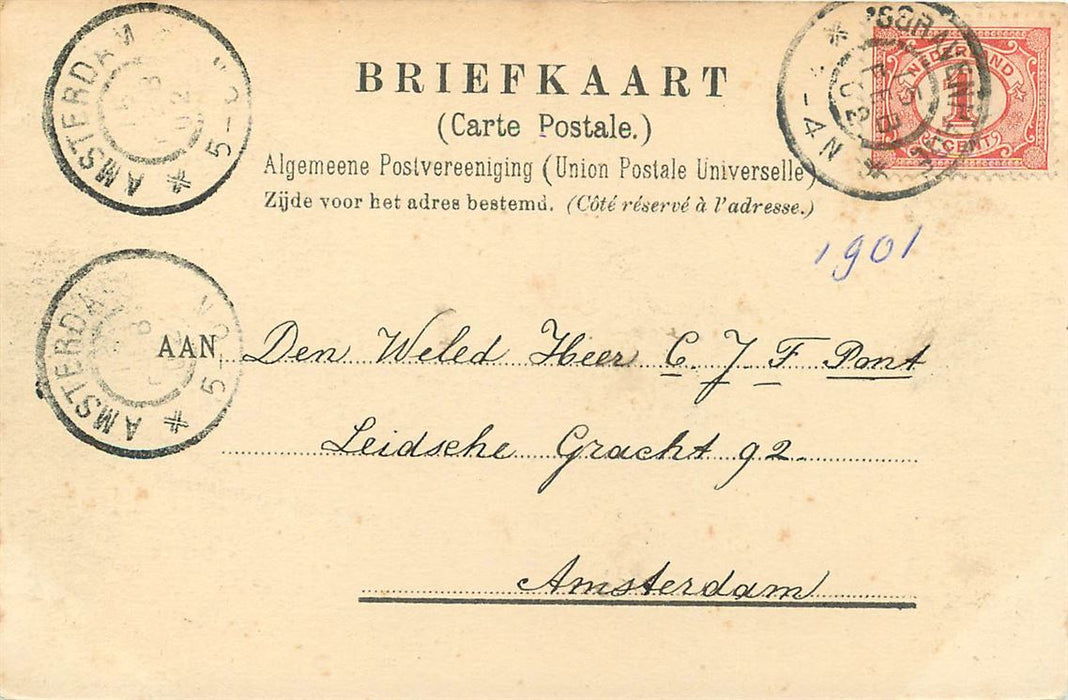 BRIEFKAART
(Carte Postale.)
Algemeene Postvereeniging (Union Postale Universelle)
Zijde voor het adres bestemd. (Côté réservé à l'adresse.)
AMSTERDAM
5-
NEDERLAND
1
CENT
15
FEB
02
-4N
1901
AMSTERDA
5-
AAN Den Weled Heer C. J. F Pont
Leidsche Gracht 92.
Amsterdam